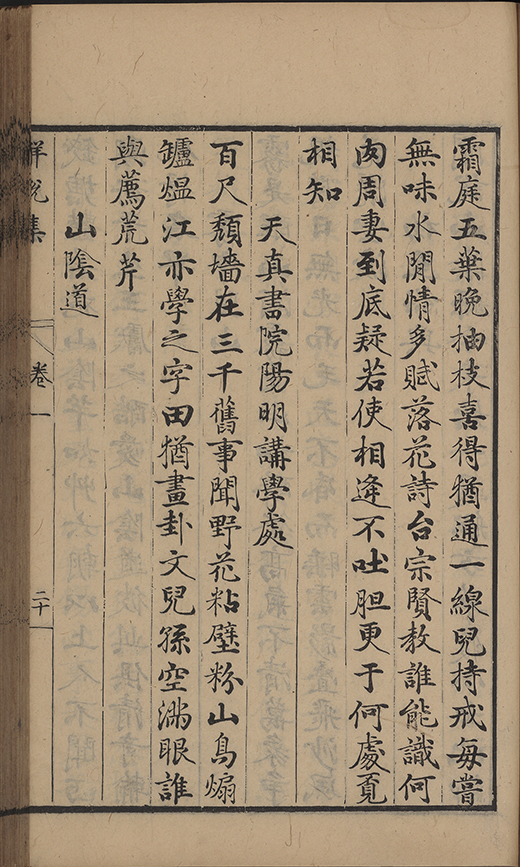 霜庭五葉晚抽枝喜得猶通一線兒持戒每嘗
無味水閒情多賦落花詩台宗賢教誰能識何
肉周妻到底疑若使相逢不吐胆更于何處覓
相知
天真書院陽明講學處
百尺頹墻在三千舊事聞野花粘壁粉山鳥煽
罏煴江亦學之字田猶畫卦文兒孫空滿眼誰
與薦荒芹
山陰道
解脫集 卷一 二十